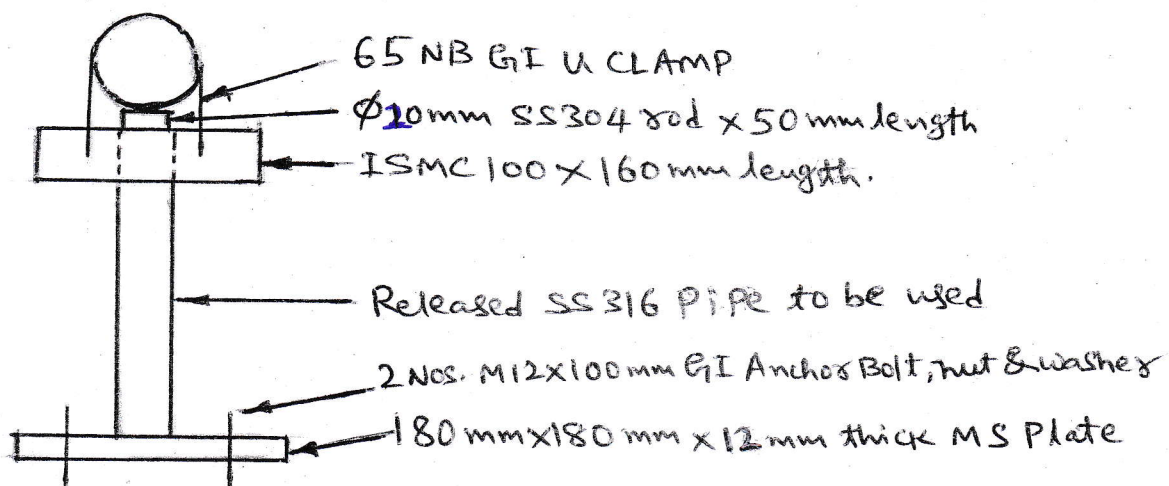 65 NB GI U CLAMP
Ø10mm SS304 rod x 50mm length
ISMC 100 x 160mm length.
Released SS316 Pipe to be used
2 Nos. M12x100mm GI Anchor Bolt, nut & washer
180mm x 180mm x 12mm thick MS Plate